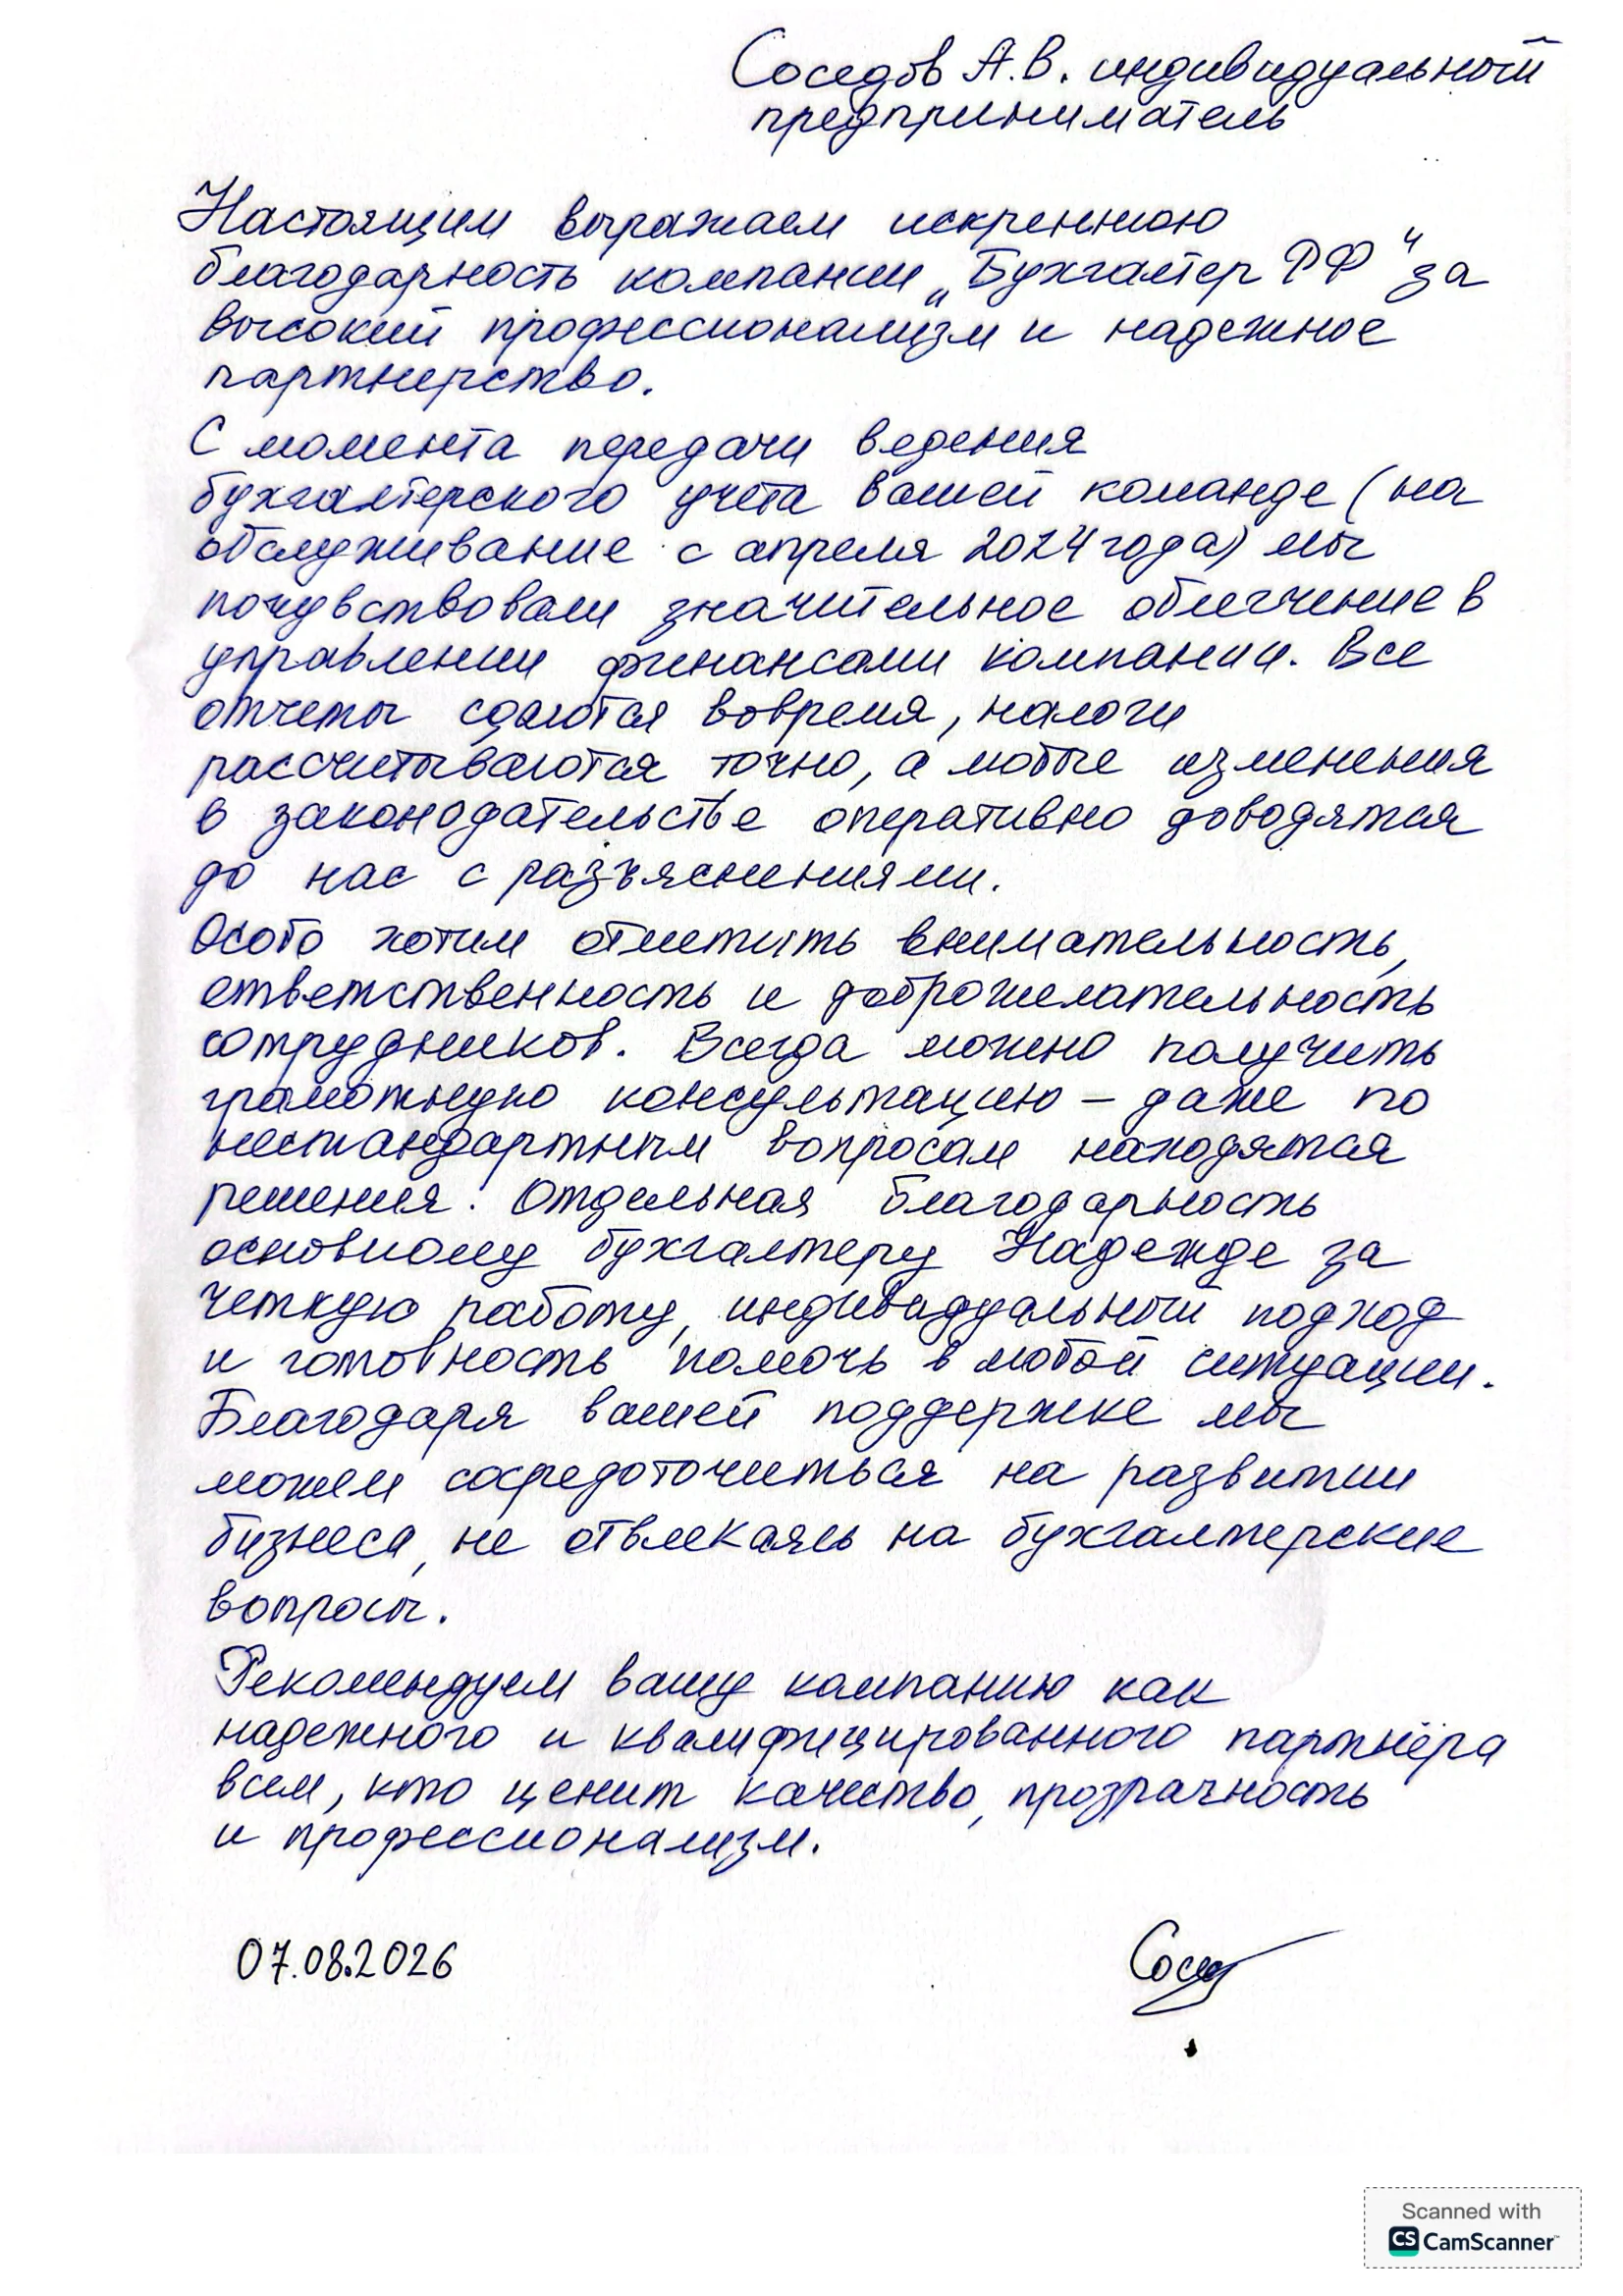 Соседов А.В. индивидуальный
предприниматель
Настоящим выражаем искреннюю
благодарность компании „Бухгалтер РФ" за
высокий профессионализм и надежное
партнерство.
С момента передачи ведения
бухгалтерского учета вашей команде (на
обслуживание с апреля 2024 года) мы
почувствовали значительное облегчение в
управлении финансами компании. Все
отчеты сдаются вовремя, налоги
рассчитываются точно, а любые изменения
в законодательстве оперативно доводятся
до нас с разъяснениями.
Особо хотим отметить внимательность,
ответственность и доброжелательность
сотрудников. Всегда можно получить
грамотную консультацию – даже по
нестандартным вопросам находятся
решения. Отдельная благодарность
основному бухгалтеру Надежде за
четкую работу, индивидуальный подход
и готовность помочь в любой ситуации.
Благодаря вашей поддержке мы
можем сосредоточиться на развитии
бизнеса, не отвлекаясь на бухгалтерские
вопросы.
Рекомендуем вашу компанию как
надежного и квалифицированного партнёра
всем, кто ценит качество, прозрачность
и профессионализм.
07.08.2026
Scanned with
CS CamScanner